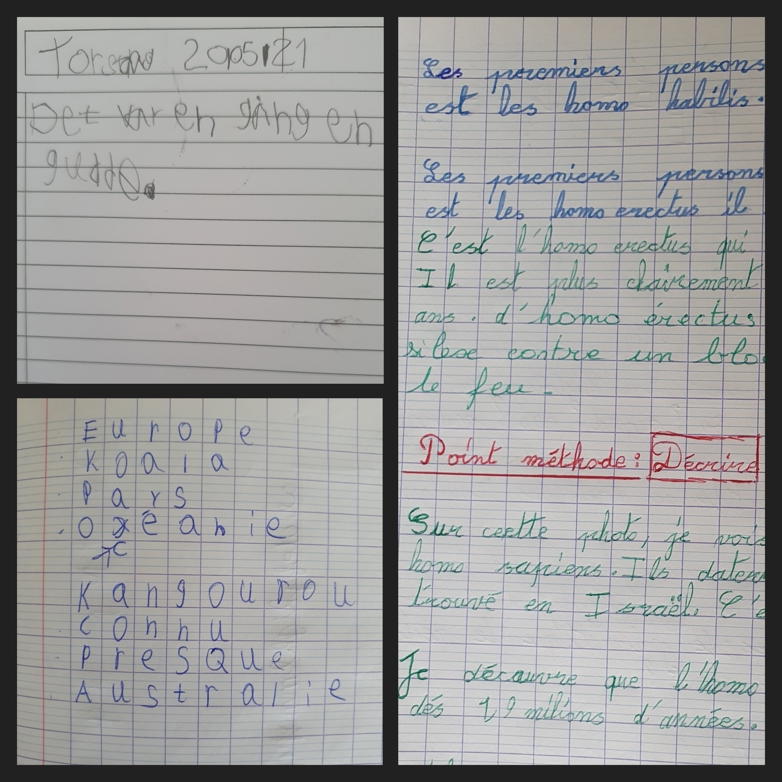 20
Det var en gång en
gudde.
Europe
Koala
Pays
Oxéanie
c
Kangourou
Connu
PresQue
Australie
Les premiers persons
est les homo habilis.
Les premiers persons
est les homo erectus il
C'est l'homo erectus qui
Il est plus clairement
ans. d'homo érectus
silese contre un blo
le feu.
Point méthode: Décrire
Sur ceette photo, je vois
homo sapiens. Ils daten
trouvé en Israël. C'e
Je découvre que l'homo
dés 1,9 milions d'années.